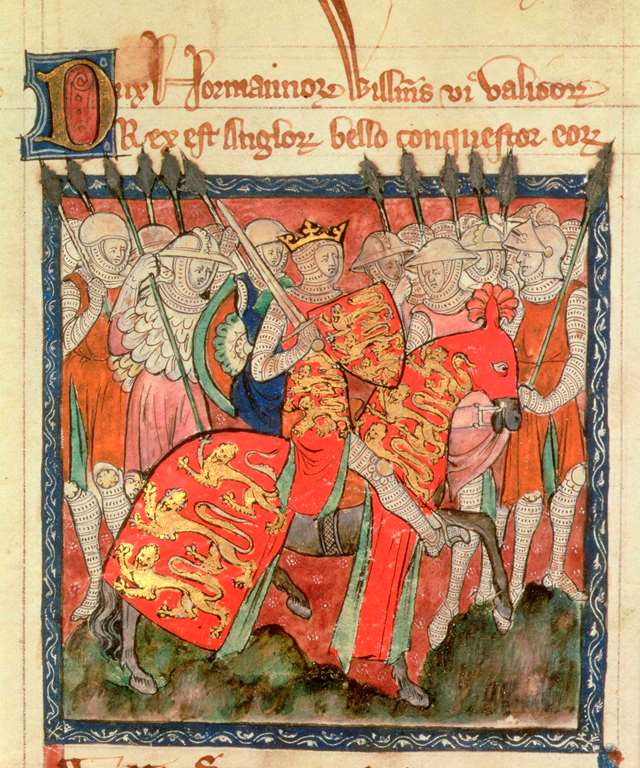 Dux Normannoꝝ Willm̄s vi validoꝝ
Rex est Angloꝝ bello conquestor eoꝝ